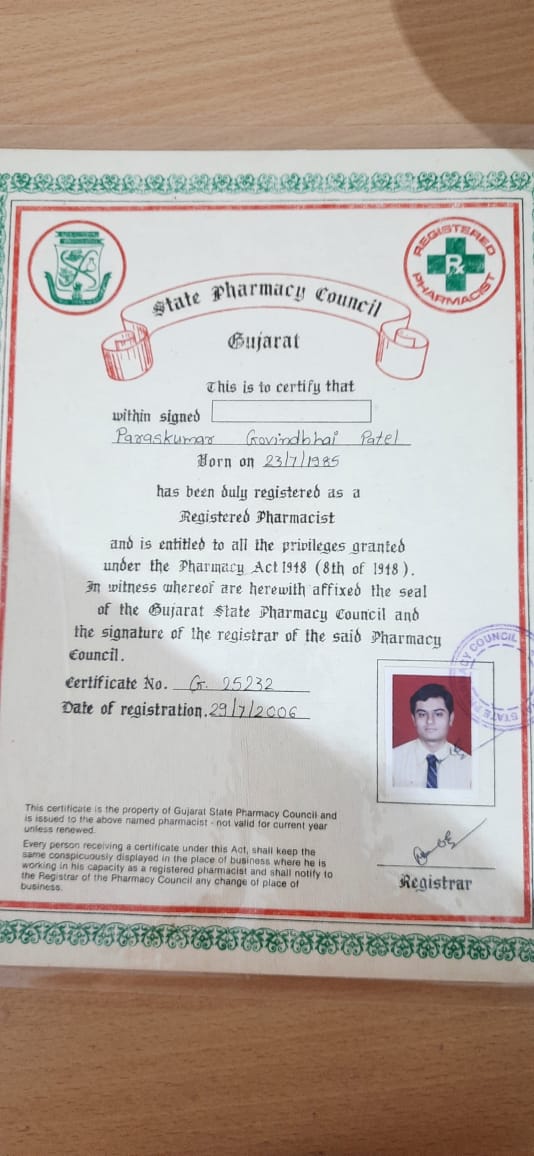 REGISTERED PHARMACIST
Rx
State Pharmacy Council
Gujarat
This is to certify that
within signed
Paraskumar Govindbhai Patel
Born on 23/7/1985
has been duly registered as a
Registered Pharmacist
and is entitled to all the privileges granted
under the Pharmacy Act 1948 (8th of 1948).
In witness whereof are herewith affixed the seal
of the Gujarat State Pharmacy Council and
the signature of the registrar of the said Pharmacy
Council.
Certificate No. G. 25232
Date of registration. 29/7/2006
CY COUNCIL
STATE P
This certificate is the property of Gujarat State Pharmacy Council and
is issued to the above named pharmacist - not valid for current year
unless renewed.
Every person receiving a certificate under this Act, shall keep the
same conspicuously displayed in the place of business where he is
working in his capacity as a registered pharmacist and shall notify to
the Registrar of the Pharmacy Council any change of place of
business.
Registrar